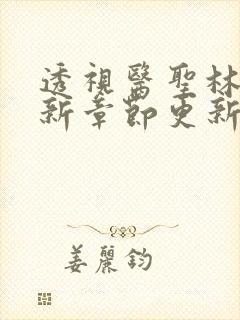 透視醫聖林
新章節更新
姜麗鈞